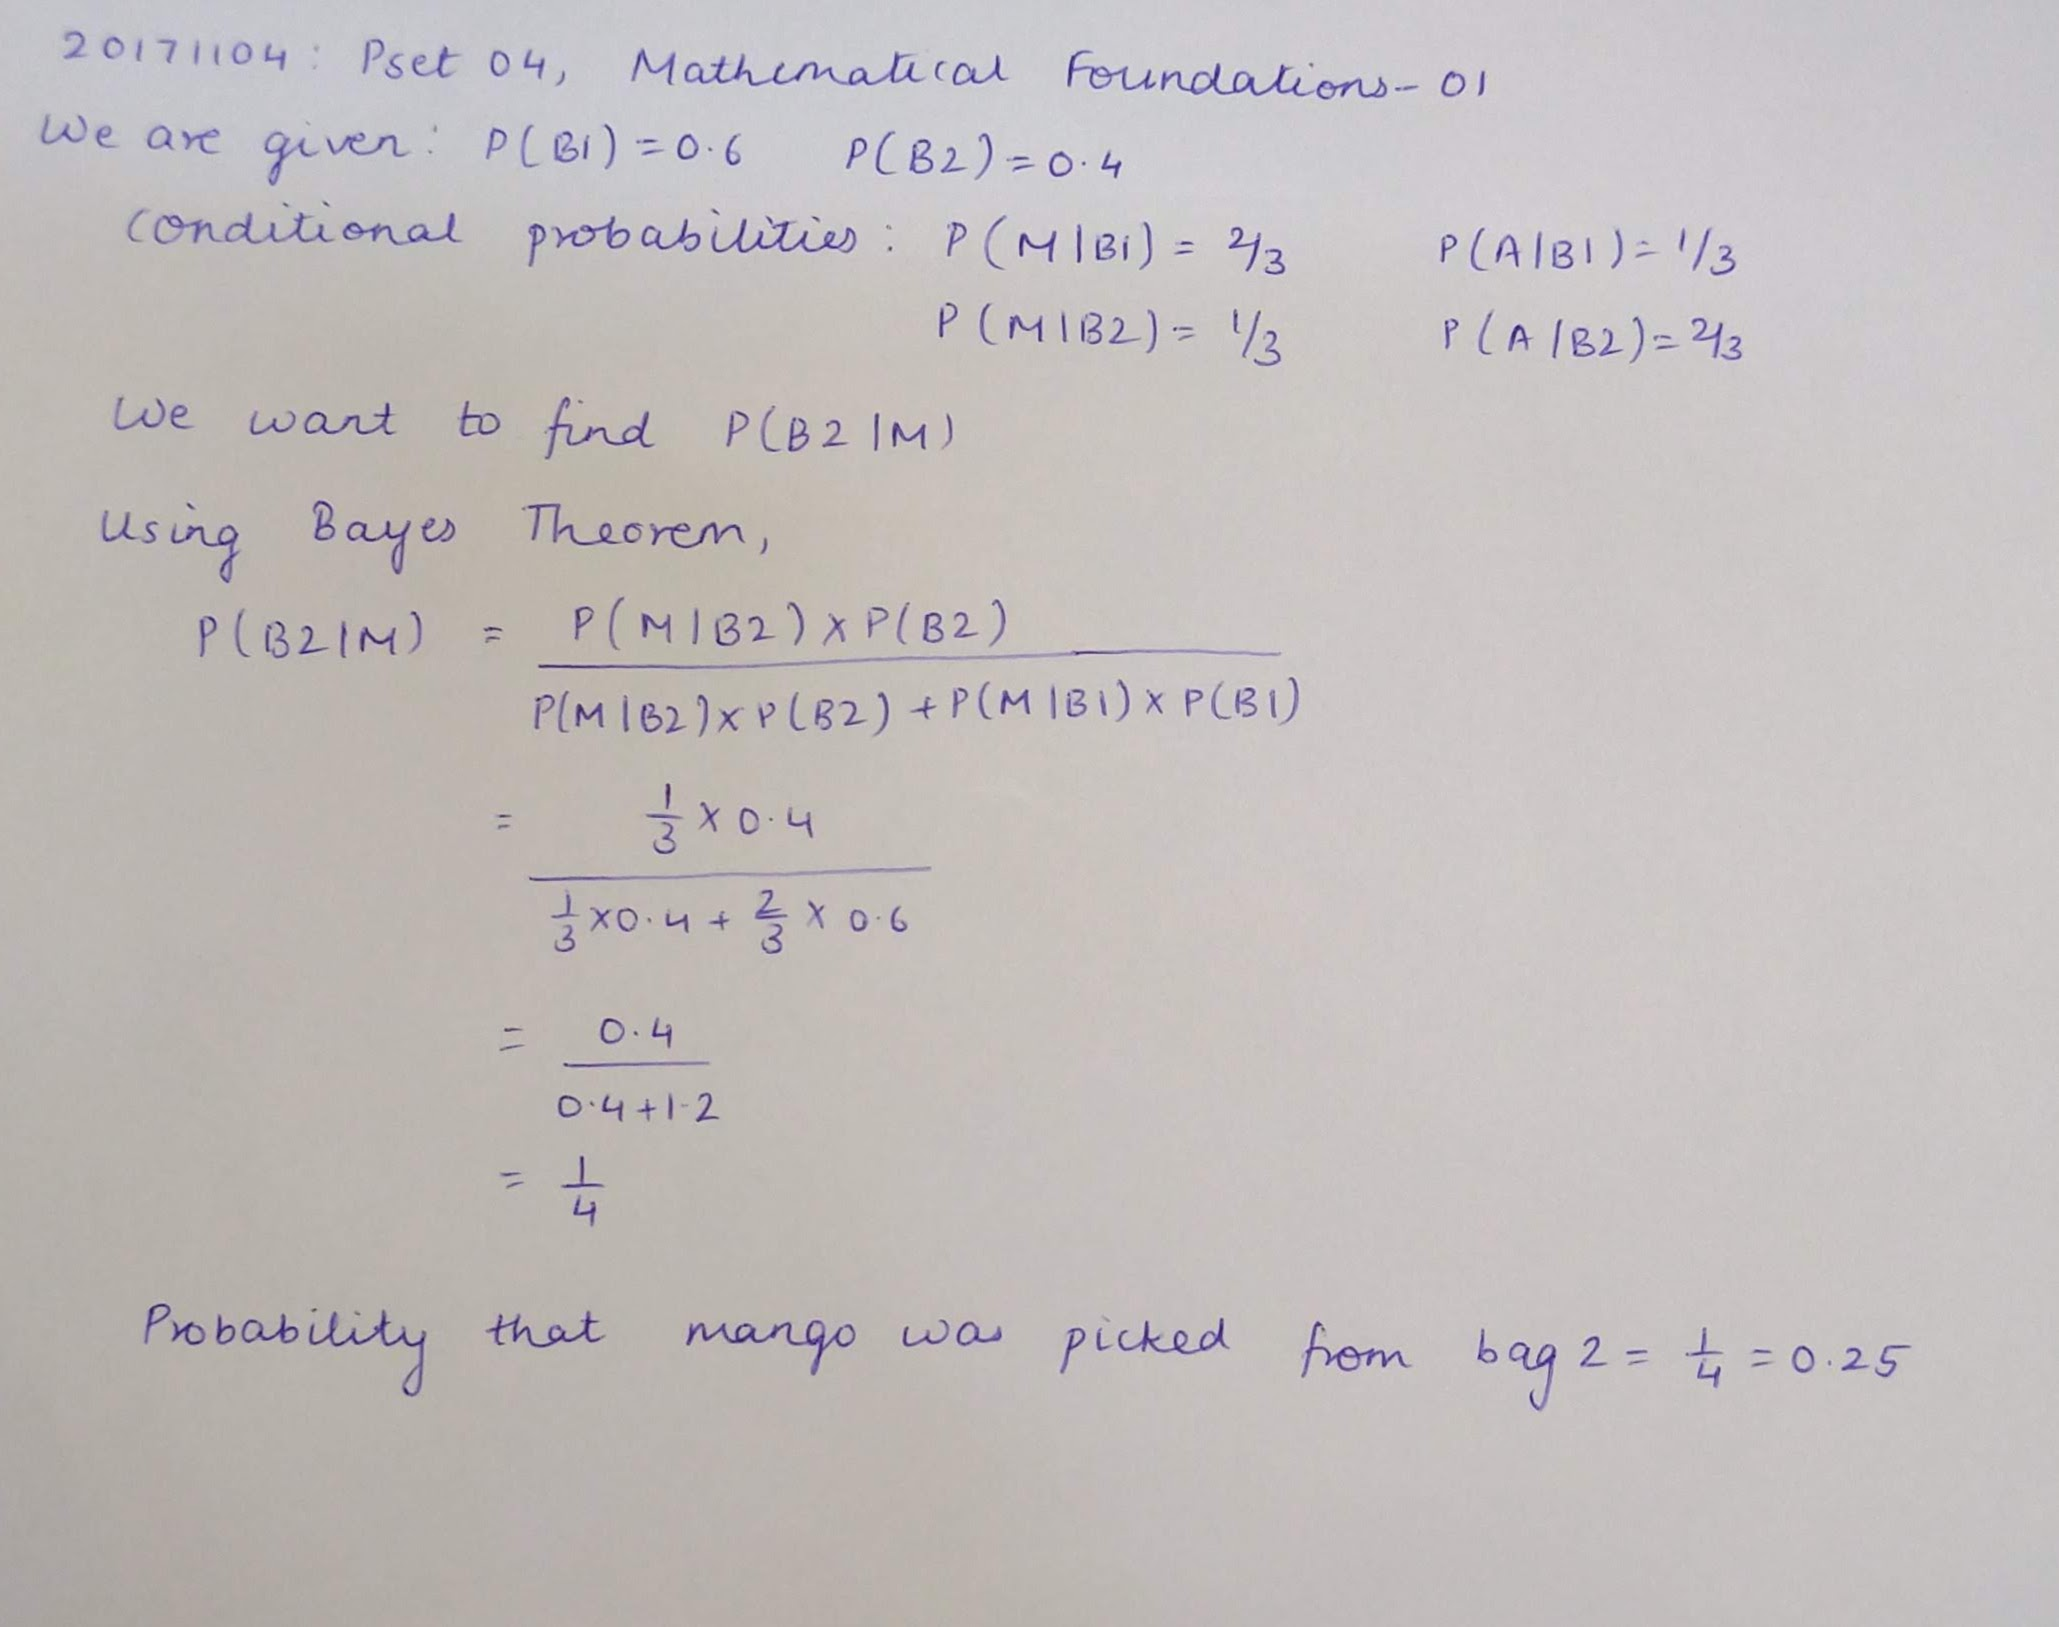 20171104: Pset 04, Mathematical Foundations-01
We are given: P(B1) = 0.6 P(B2) = 0.4
Conditional probabilities: P(M|B1) = 2/3 P(A|B1) = 1/3
P(M|B2) = 1/3 P(A|B2) = 2/3
We want to find P(B2|M)
Using Bayes Theorem,
P(B2|M) = P(M|B2) x P(B2)
P(M|B2) x P(B2) + P(M|B1) x P(B1)
= 1/3 x 0.4
1/3 x 0.4 + 2/3 x 0.6
= 0.4
0.4+1.2
= 1/4
Probability that mango was picked from bag 2 = 1/4 = 0.25